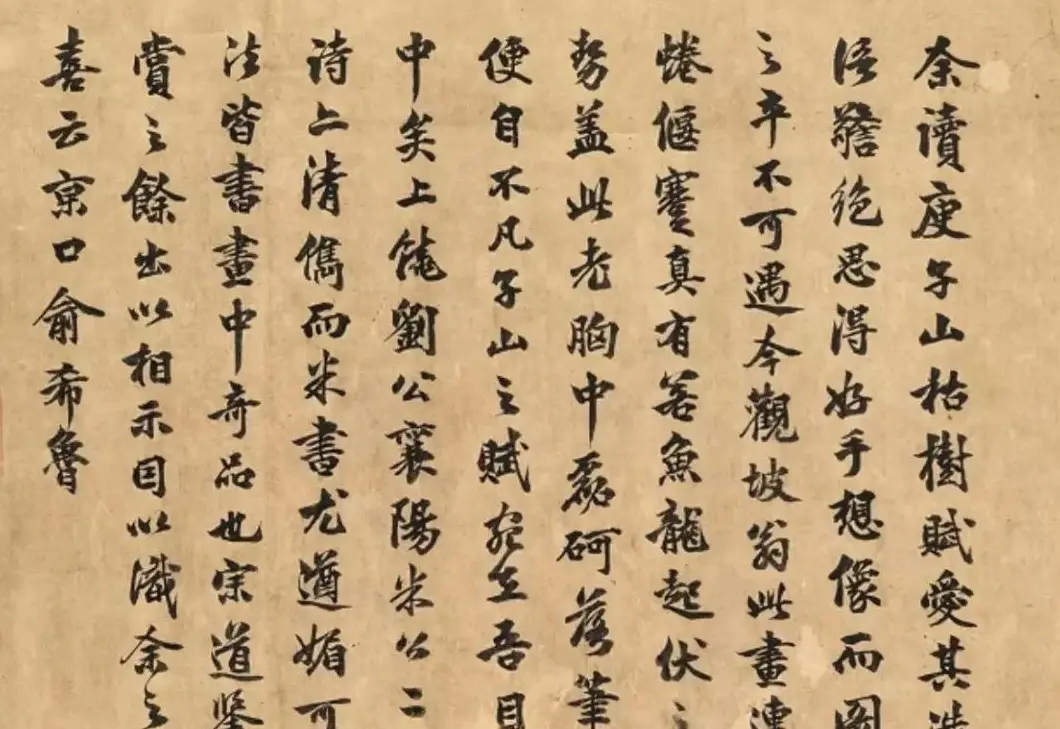 余讀庾子山枯樹賦愛其造
語警絶思得好手想像而圖
之卒不可遇今觀坡翁此畫連
蜷偃蹇真有若魚龍起伏之
勢盖此老胸中磊砢落筆
便自不凡子山之賦宛在吾目
中矣上饒劉公襄陽米公二
诗二清儁而米書尤遒媚可
法皆書畫中奇品也宗道鑒
賞之餘出以相示因以識余之
喜云京口俞希魯